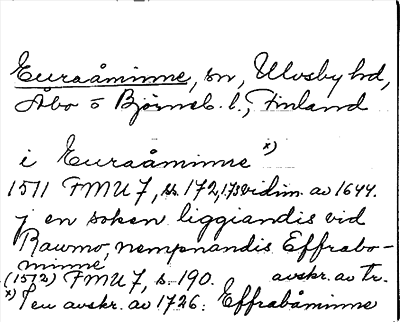 Euraåminne, sn, Ulvsby hd,
Åbo o Björneb. l., Finland
i Euraåminne x)
1511 FMU 7, s. 172, 173 vidim. av 1644.
j en soken liggiandis vid
Raumo, nempnandis Effrabo-
minne
(1512) FMU 7, s. 190. avskr. av tr.
x) I en avskr. av 1726: Effrabåminne